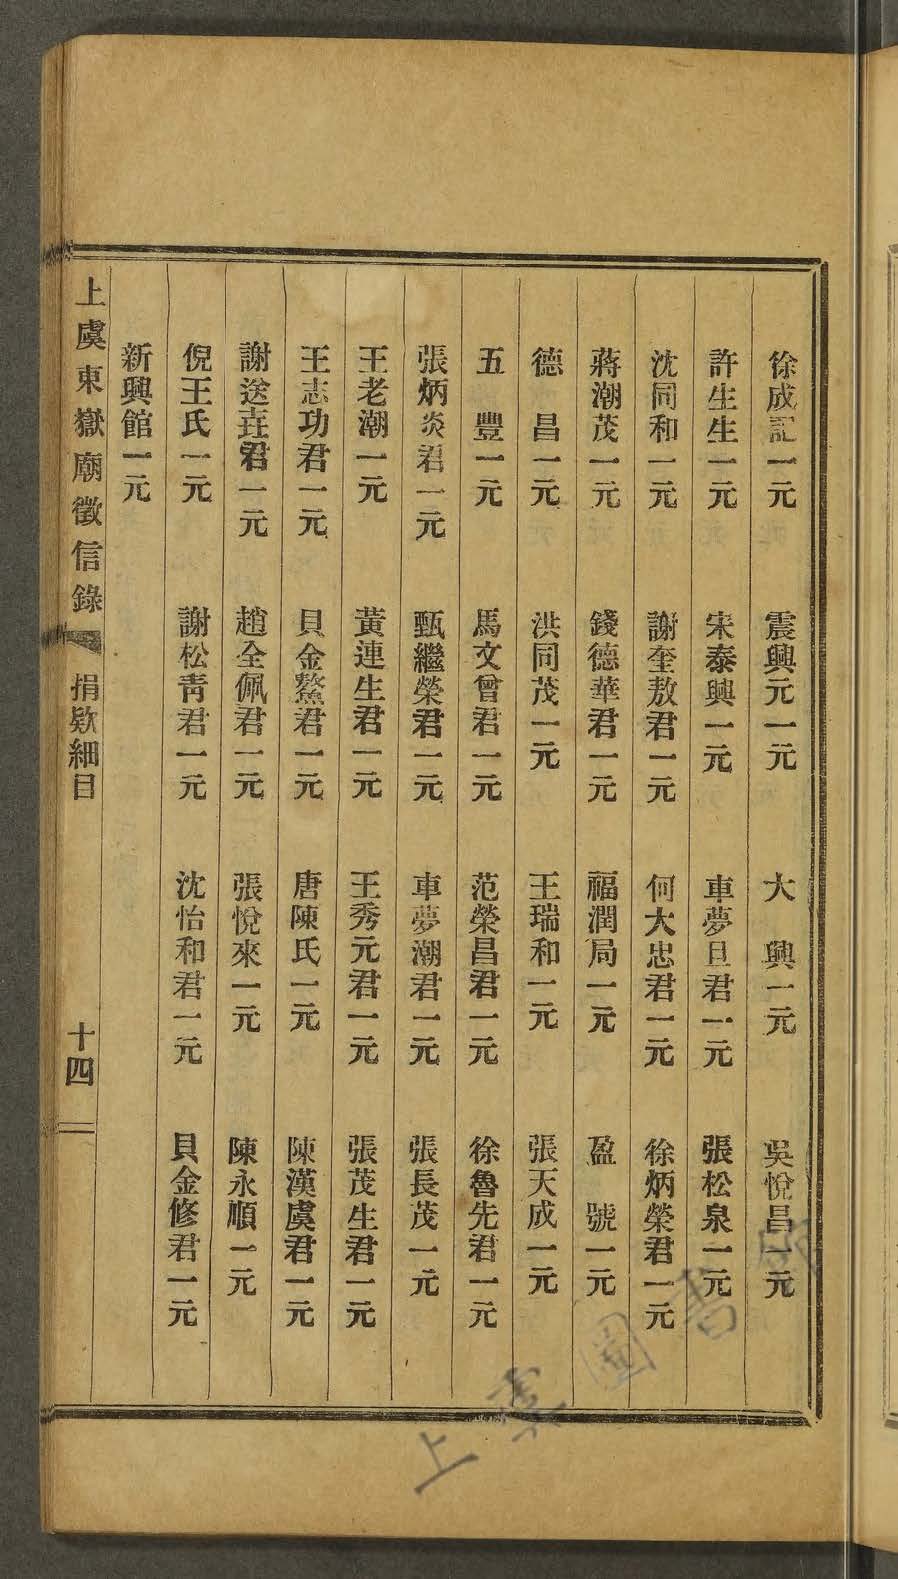 徐成記一元　震興元一元　大興一元　吳悅昌一元
許生生一元　宋泰興一元　車夢旦君一元　張松泉一元
沈同和一元　謝奎敖君一元　何大忠君一元　徐炳榮君一元
蔣潮茂一元　錢德華君一元　福潤局一元　盈號一元
德昌一元　洪同茂一元　王瑞和一元　張天成一元
五豐一元　馬文曾君一元　范榮昌君一元　徐魯先君一元
張炳炎君一元　甄繼榮君一元　車夢潮君一元　張長茂一元
王老潮一元　黃連生君一元　王秀元君一元　張茂生君一元
王志功君一元　貝金鰲君一元　唐陳氏一元　陳漢虞君一元
謝送君一元　趙全佩君一元　張悅來一元　陳永順一元
倪王氏一元　謝松青君一元　沈怡和君一元　貝金修君一元
新興館一元
上虞東嶽廟徵信錄　捐欵細目　十四
上虞圖書館